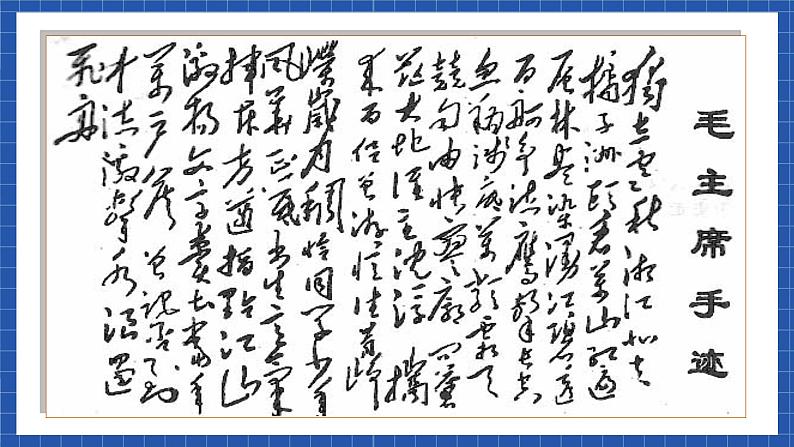 毛主席手迹
独立寒秋湘江北去
橘子洲头看万山红遍
层林尽染漫江碧透
百舸争流鹰击长空
鱼翔浅底万类霜天
竞自由怅寥廓问苍
茫大地谁主沉浮携
来百侣曾游忆往昔峥
嵘岁月稠恰同学少年
风华正茂书生意气
挥斥方遒指点江山
激扬文字粪土当年
万户侯曾记否到
中流击水浪遏
飞舟